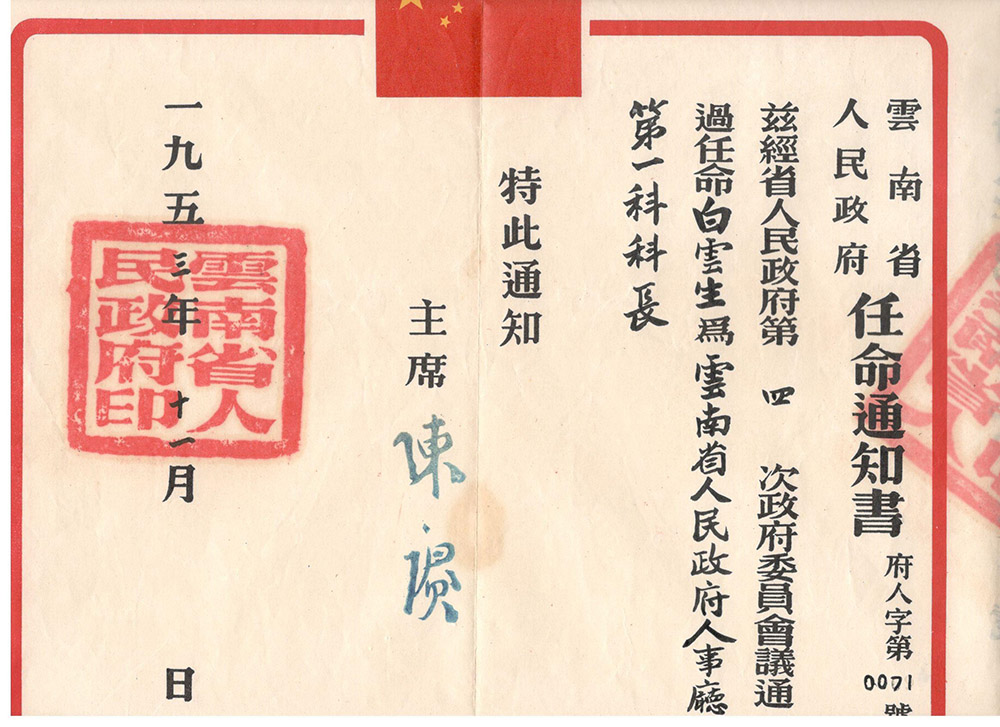 雲南省
人民政府
任命通知書
府人字第0071號
茲經省人民政府第四次政府委員會議通
過任命白雲生爲雲南省人民政府人事廳
第一科科長
特此通知
主席 陳賡
一九五三年十一月 日
雲南省人
民政府印